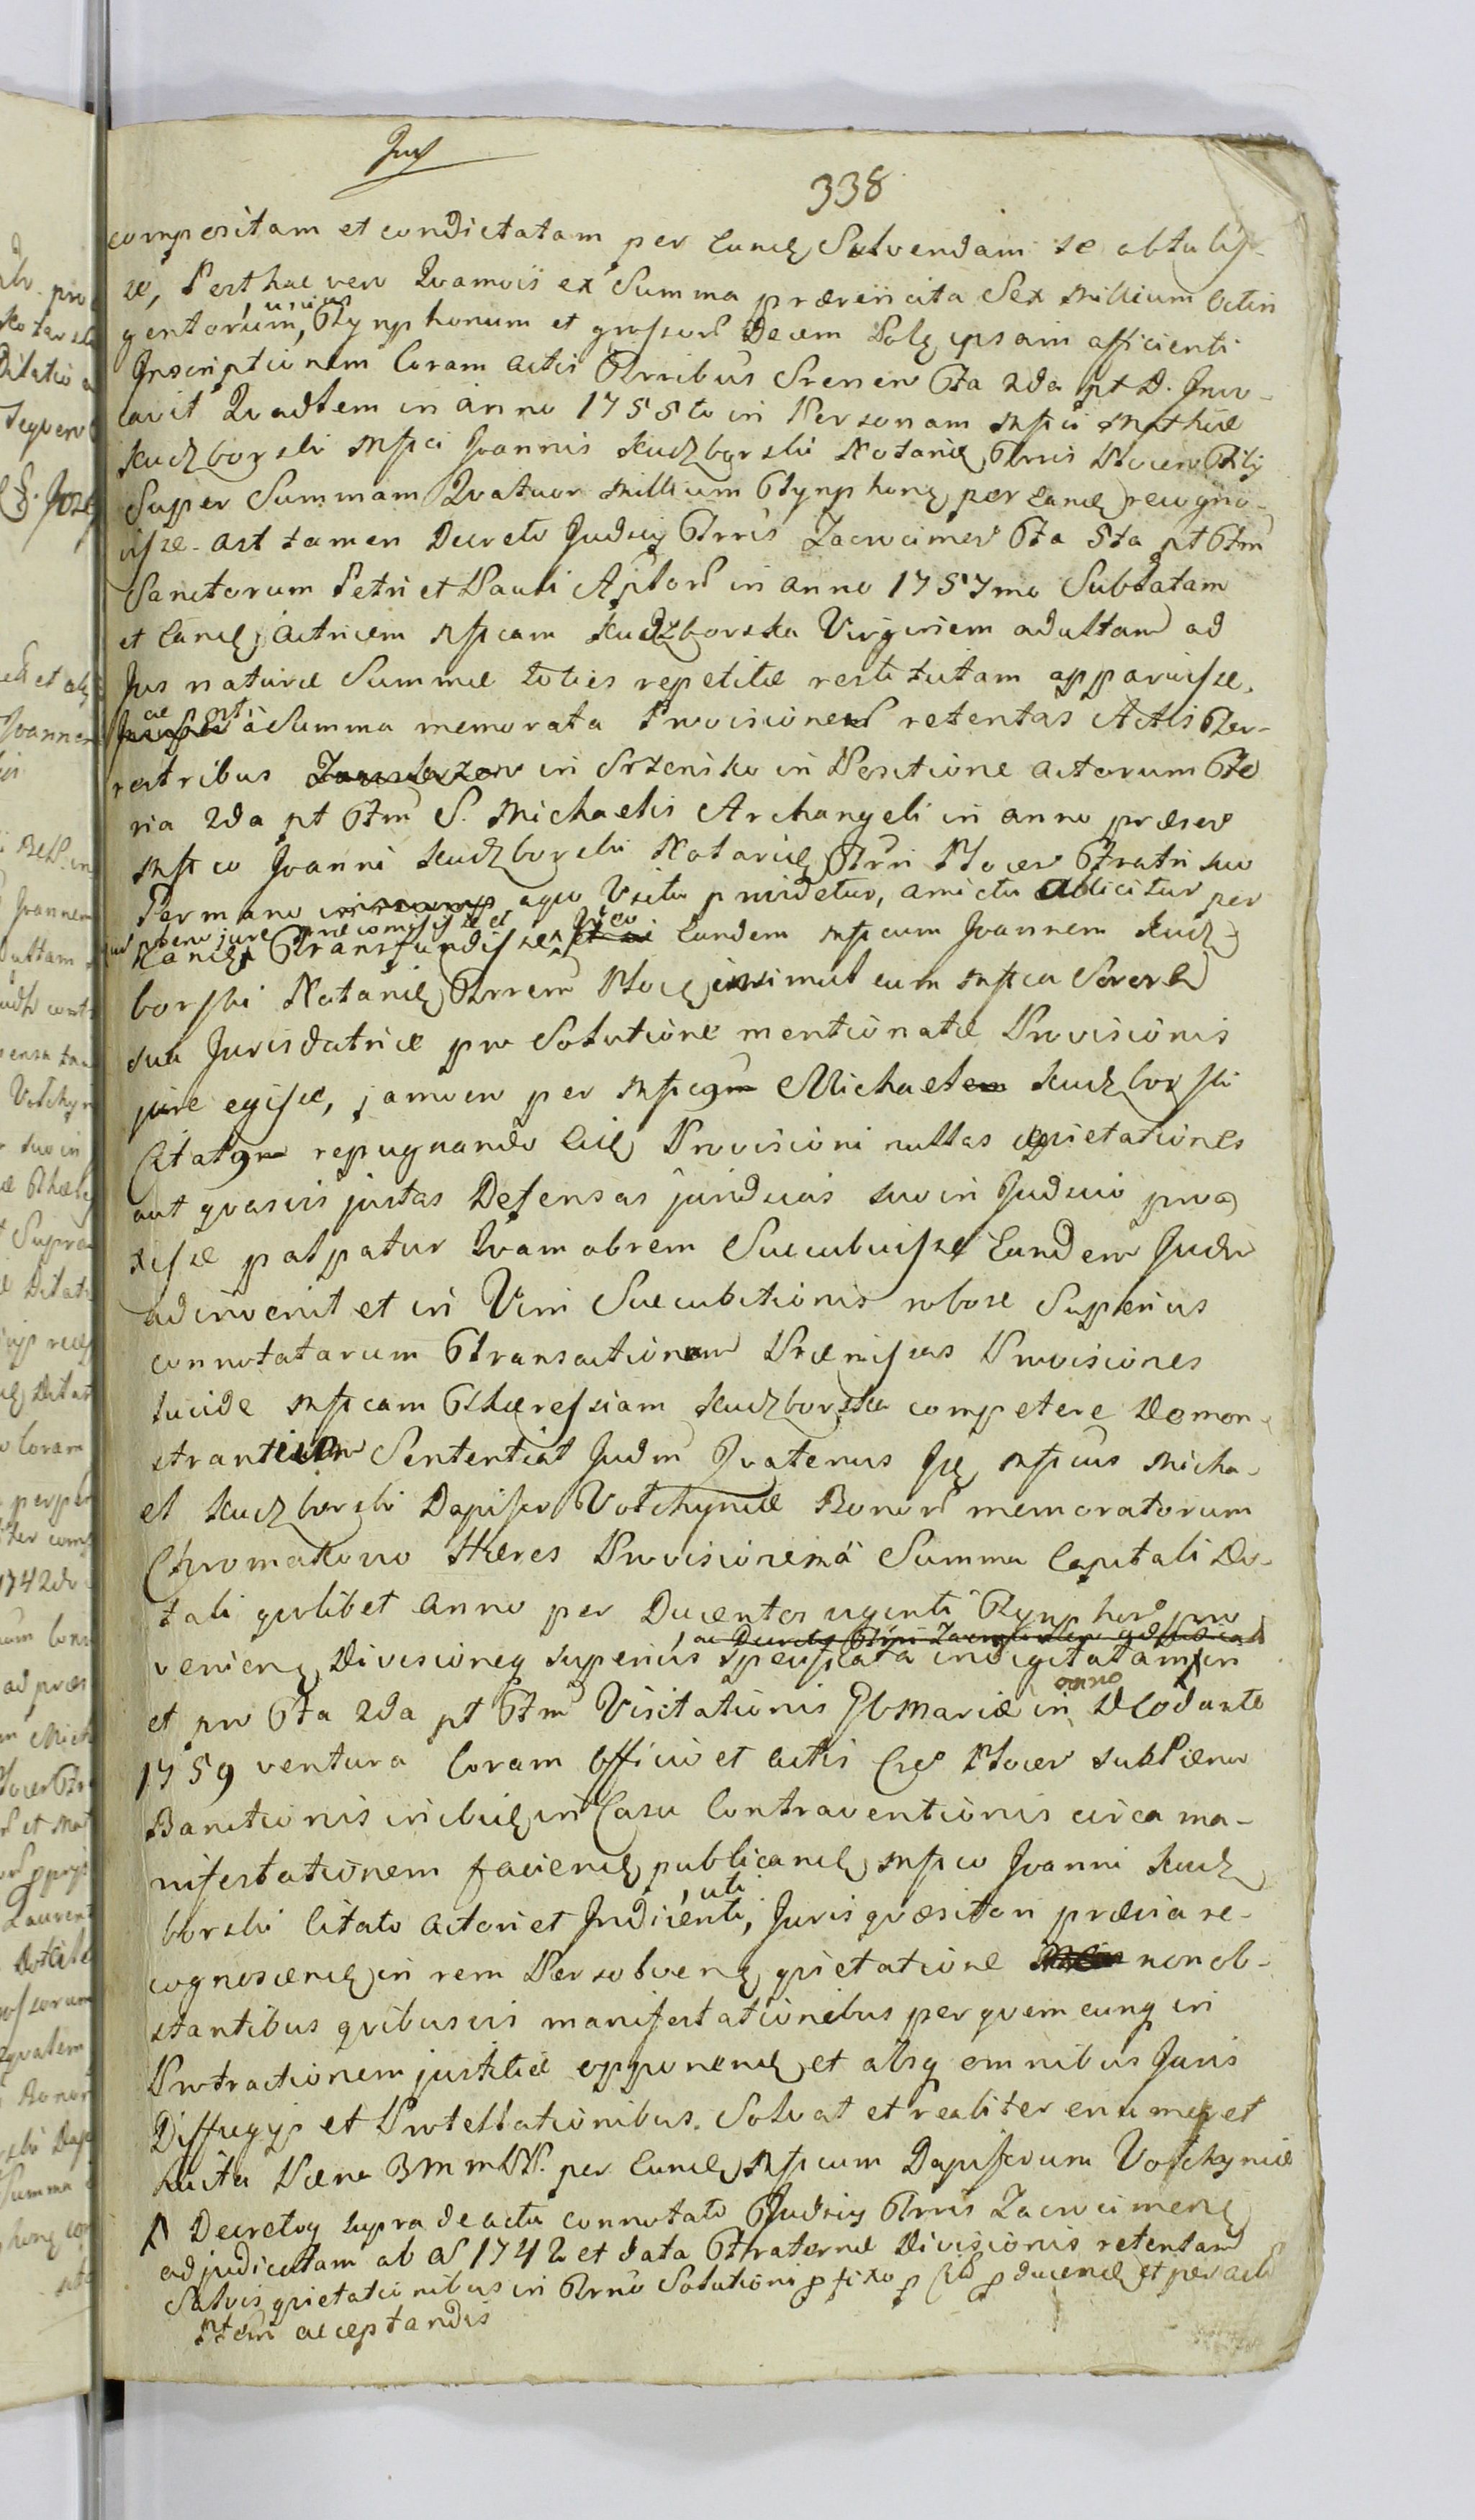 338
compositam et condictatam per Eand Solvendam se obtulis-
se, Post hac vero Qvamvis ex Summa prævÿcita Sex Millium Octin
gentorum, Tynphonum et grossorum Decem Pol ipsam afficienti
Inscriptionem Coram actis Trribus Srenen Fa 2da pt D. Invo-
cavit Qvadtem in anno 1755to in Personam Mfci Mathiæ
Kudzborski Mfci Joannis Kudzborski Notarii Trris Plocen Filij
Super Summam Qvatuor Millium Tynphon per Eand recogno-
visse. ast tamen Decreto Judicij Trris Zacrocimen Fa 5ta pt Ftm
Sanctorum Petri et Pauli Aplor in anno 1757mo Sublatam
et Eand, actricem Mfcam Kudzborska Virginem adultam ad
Jus naturæ Summæ toties repetitæ restitutam apparuisse.
a Summa memorata Provisiones retentas Actis Ter-
restribus in Srzensko in Positione actorum Fe
ria 2da pt Ftm S. Michaelis Archangeli in anno præsen
Mfco Joanni Kudzborski Notario Trri Plocen Fratri suo
Permano aqvo Usitu pvidetur, amictu allicitur per
pleno jure præcomisisse et
Eand Transfundisse, Eundem Mfcum Joannem Kudz-
borski Notarium Trrem Ploc insimul cum Mfca Sorore
sua Jurisdatrice pro Solutione mentionatæ Provisionis
jure egisse, jamvero per Mfcum Michaelem Kudzborski
Citatum repugnando Eid Provisioni nullas qvietationes
aut qvasvis justas Defensas juridicas suo in Judicio prod
xisse palpatur Qvamobrem Succubuisse Eundem Judm
adinvenit et in Vim Succubitionis robore Superius
connotatarum Transactionum Præmissas Provisiones
lucide Mfcam Theressiam Kudzborska competere Demon-
strantium Sententiat Judm Qvatenus Mfcus Micha-
el Kudzborski Dapifer Volhyniæ Bonor memoratorum
Chromakowo Hæres Provisionem a Summa Capitali Do-
tali qvolibet anno per Ducentos viginti Tynphos pro
venien Divisioneq superius specificata indigitatam in
et pro Fa 2da pt Ftm Visitationis BMariæ in anno
1759 ventura Coram Officio et actis Plocen sub Pæna
Banitionis incidend in Casu Contraventionis circa ma-
nifestationem faciend publicand Mfco Joanni Kudz
borski Citato actori et Indicenti, uti Juris qvæsitori prævia re-
cognoscend in rem Persolven qvietatione non ob-
stantibus qvibusvis manifestationibus per qvemcunq in
Protractionem justitiæ opponend et absq omnibus Juris
Diffugijs et Protestationibus. Solvat et realiter enumeret
lucita Pæna 3MmPP. per Eund Mfcum Dapiferum Volhyniæ
Decretoq supra de actu connotato Judicij Trris Zacrocimen
adjudicatam ab A 1742 et data Fraternæ Divisionis retentam
Salvis qvietationibus in Trno Solutioni et per acto
acceptandis